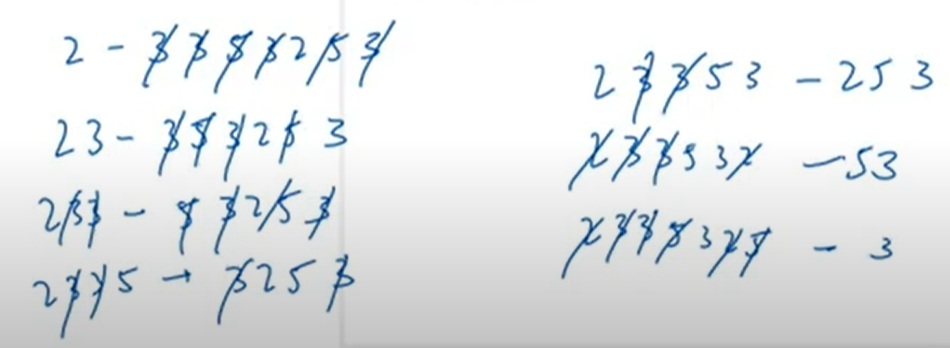 2 - 3353253
23 - 353253
233 - 53253
2335 - 3253
23353 - 253
233532 - 53
2335325 - 3